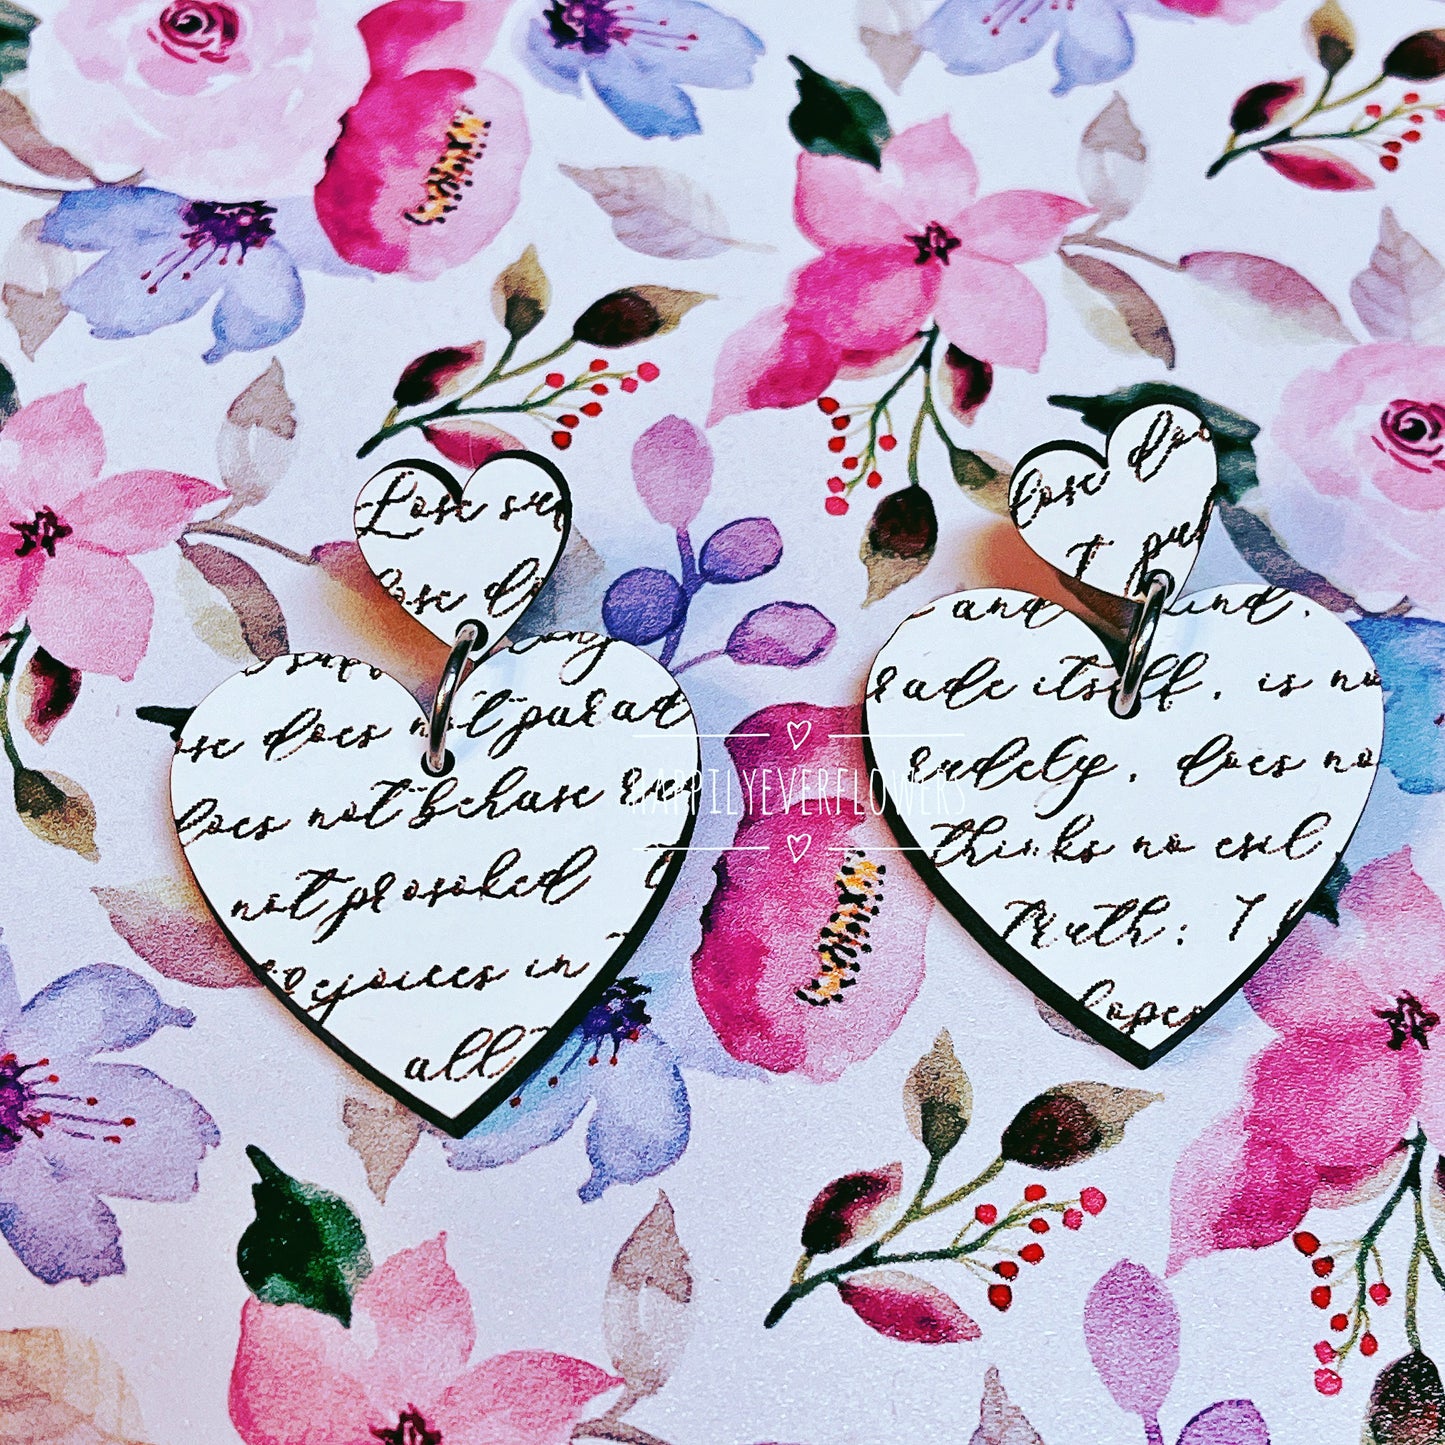 Lose suf
lose do
does not parad
does not behave
not provoked
Rejoices in
all
lose do
t pu
and kind,
rade itself, is no
rudely, does no
thinks no evil,
Truth; I
hopes
HAPPILYEVERFLOWERS